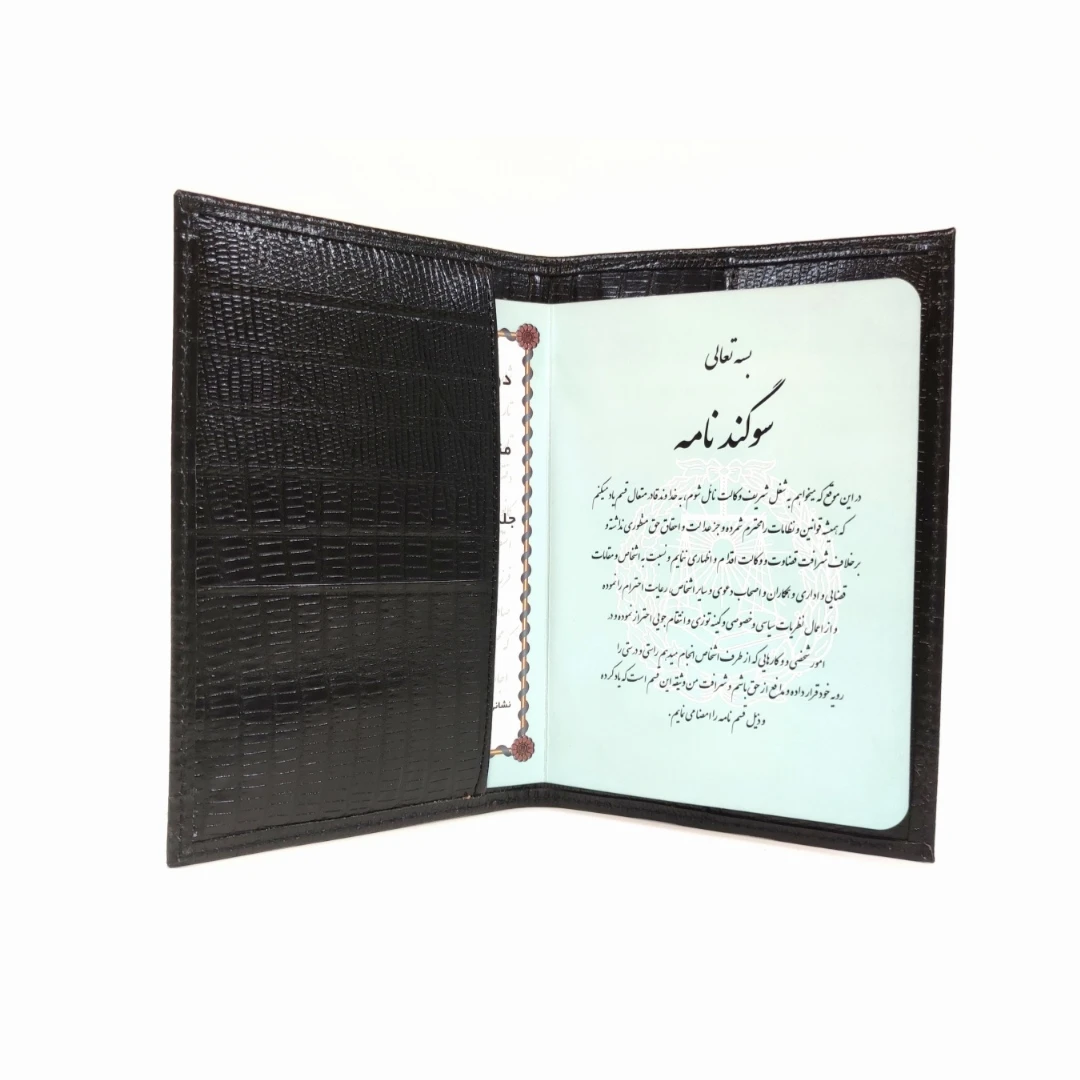 بسمه تعالی
سوگند نامه
در این موقع که میخواهم به شغل شریف وکالت نائل شوم، به خداوند قادر متعال قسم یاد میکنم
که همیشه قوانین و نظامات را محترم شمرده و جز عدالت و احقاق حق منظوری نداشته و
برخلاف شرافت قضاوت و وکالت اقدام و اظهاری ننمایم و نسبت به اشخاص و مقامات
قضایی و اداری و همکاران و اصحاب دعوی و سایر اشخاص، رعایت احترام را نموده
و از اعمال نظریات سیاسی و خصوصی و کینه توزی و انتقام جویی احتراز نموده و در
امور شخصی و کارهایی که از طرف اشخاص انجام میدهم راستی و درستی را
رویه خود قرار داده و مدافع از حق باشم و شرافت من وثیقه این قسم است که یاد کرده
و ذیل قسم نامه را امضا می نمایم.
جلد
نشانی